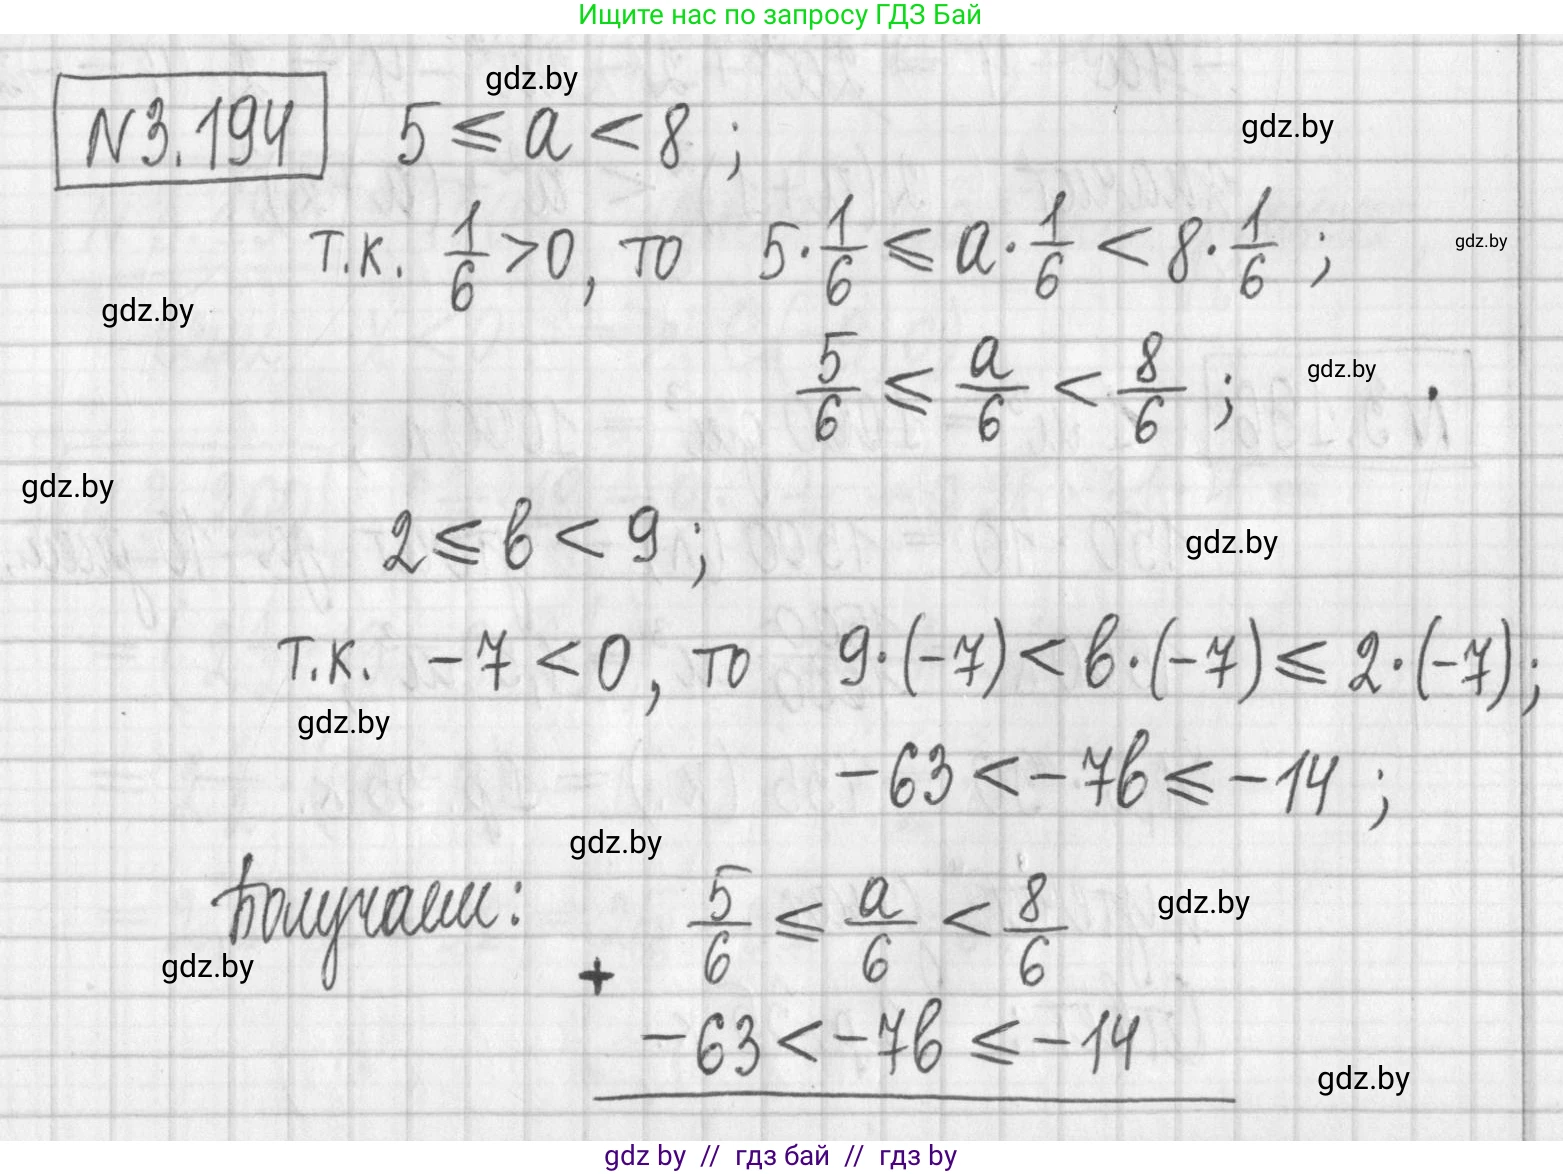 Ищите нас по запросу ГДЗ Бай
gdz.by
N3.194 5 ≤ a < 8 ;
gdz.by
т.к. 1/6 > 0, то 5·1/6 ≤ a·1/6 < 8·1/6 ;
gdz.by
gdz.by
5/6 ≤ a/6 < 8/6 ;
gdz.by
gdz.by
2 ≤ в < 9 ;
gdz.by
т.к. -7 < 0, то 9·(-7) < в·(-7) ≤ 2·(-7) ;
gdz.by
-63 < -7в ≤ -14 ;
gdz.by
Получаем: 5/6 ≤ a/6 < 8/6
gdz.by
gdz.by
+
-63 < -7в ≤ -14
gdz.by
gdz by // гдз бай // гдз by